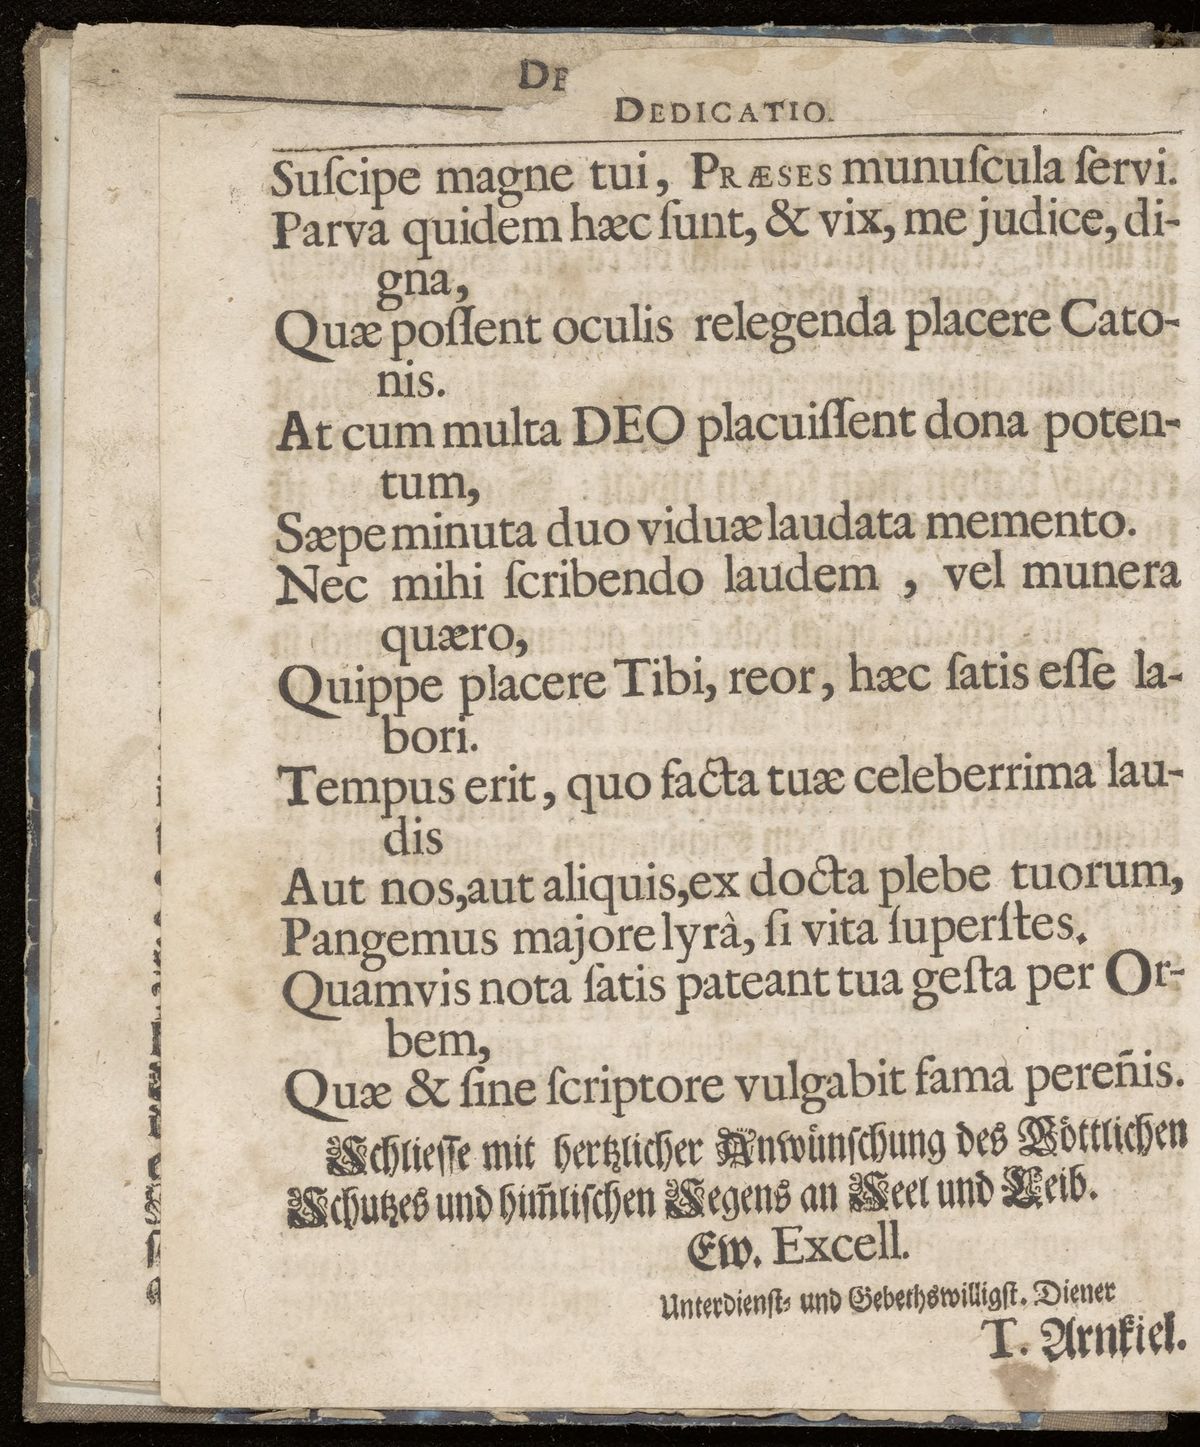 DE
DEDICATIO.
Suſcipe magne tui, PRÆSES munuſcula ſervi.
Parva quidem hæc ſunt, & vix, me judice, di-
gna,
Quæ poſſent oculis relegenda placere Cato-
nis.
At cum multa DEO placuiſſent dona poten-
tum,
Sæpe minuta duo viduæ laudata memento.
Nec mihi ſcribendo laudem , vel munera
quæro,
Quippe placere Tibi, reor, hæc ſatis eſſe la-
bori.
Tempus erit, quo facta tuæ celeberrima lau-
dis
Aut nos,aut aliquis,ex docta plebe tuorum,
Pangemus majore lyrà, ſi vita ſuperſtes.
Quamvis nota ſatis pateant tua geſta per Or-
bem,
Quæ & ſine ſcriptore vulgabit fama pereñis.
Schlieſſe mit hertzlicher Anwünſchung des Göttlichen
Schutzes und him̃liſchen Segens an Seel und Leib.
Ew. Excell.
Unterdienſt- und Gebethswilligſt. Diener
T. Arnkiel.